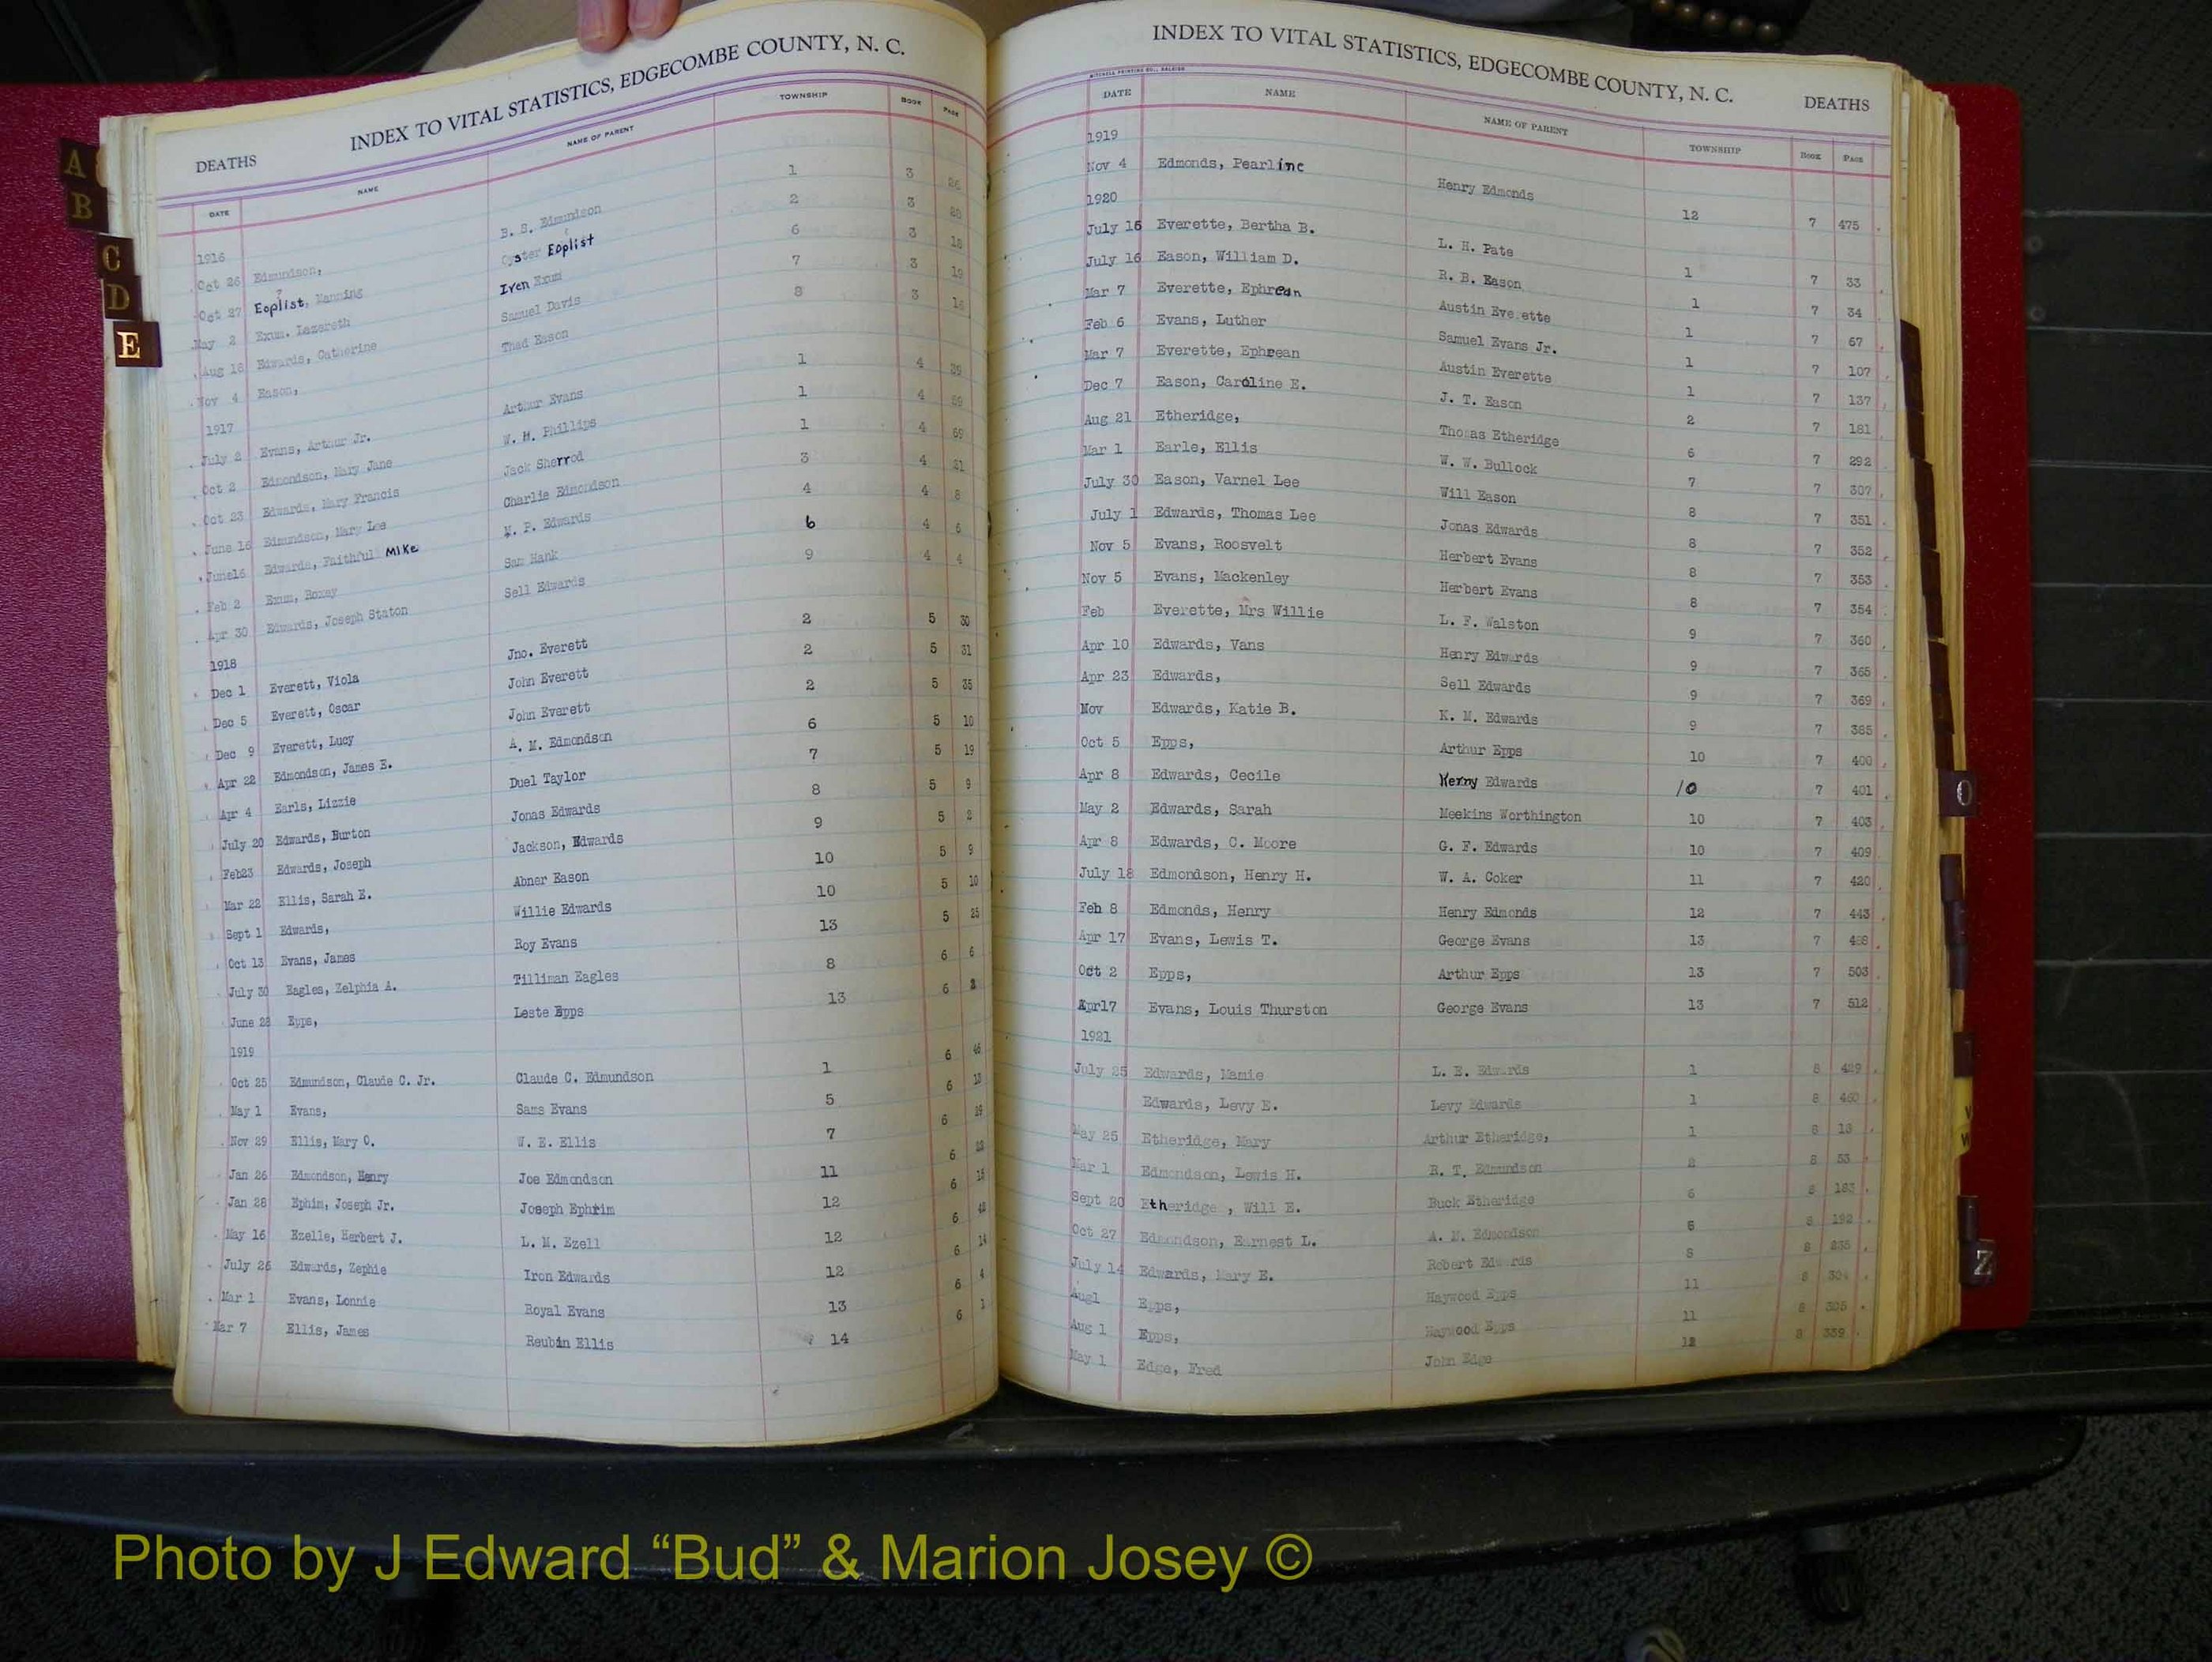 INDEX TO VITAL STATISTICS, EDGECOMBE COUNTY, N. C.
DEATHS
DATE NAME NAME OF PARENT TOWNSHIP BOOK PAGE
1916
Oct 26 Edmundson, B. S. Edmundson 1 3 26
Oct 27 Eoplist, Manning Oyster Eoplist 2 3 20
May 2 Exum. Lazareth Iven Exum 6 3 18
Aug 18 Edwards, Catherine Samuel Davis 7 3 19
Nov 4 Eason, Thad Eason 8 3
1917
July 2 Evans, Arthur Jr. Arthur Evans 1 4 39
Oct 2 Edmondson, Mary Jane W. H. Phillips 1 4 59
Oct 23 Edwards, Mary Francis Jack Sherrod 1 4 69
June 16 Edmundson, Mary Lee Charlie Edmondson 3 4 21
June16 Edwards, Faithful Mike M. P. Edwards 4 4 8
Feb 2 Exum, Roxey Sam Hank 6 4 6
Apr 30 Edwards, Joseph Staton Sell Edwards 9 4 4
1918
Dec 1 Everett, Viola Jno. Everett 2 5 30
Dec 5 Everett, Oscar John Everett 2 5 31
Dec 9 Everett, Lucy John Everett 2 5 35
Apr 22 Edmondson, James E. A. M. Edmondson 6 5 10
Apr 4 Earls, Lizzie Duel Taylor 7 5 19
July 20 Edwards, Burton Jonas Edwards 8 5 9
Feb23 Edwards, Joseph Jackson, Edwards 9 5 2
Mar 22 Ellis, Sarah E. Abner Eason 10 5 9
Sept 1 Edwards, Willie Edwards 10 5 10
Oct 13 Evans, James Roy Evans 13 5 25
July 30 Eagles, Zelphia A. Tilliman Eagles 8 6 6
June 28 Epps, Leste Epps 13 6
1919
Oct 25 Edmundson, Claude C. Jr. Claude C. Edmundson 1 6 46
May 1 Evans, Sams Evans 5 6 10
Nov 29 Ellis, Mary O. W. E. Ellis 7 6
Jan 26 Edmondson, Henry Joe Edmondson 11 6
Jan 28 Ephim, Joseph Jr. Joseph Ephrim 12 6 15
May 16 Ezelle, Herbert J. L. M. Ezell 12 6
July 26 Edwards, Zephie Iron Edwards 12 6 14
Mar 1 Evans, Lonnie Royal Evans 13 6 4
Mar 7 Ellis, James Reubin Ellis 14 6 1
INDEX TO VITAL STATISTICS, EDGECOMBE COUNTY, N. C.
DEATHS
MITCHELL PRINTING CO., RALEIGH
DATE NAME NAME OF PARENT TOWNSHIP BOOK PAGE
1919
Nov 4 Edmonds, Pearline Henry Edmonds 12 7 475
1920
July 16 Everette, Bertha B. L. H. Pate 1 7 33
July 16 Eason, William D. R. B. Eason 1 7 34
Mar 7 Everette, Ephrean Austin Everette 1 7 67
Feb 6 Evans, Luther Samuel Evans Jr. 1 7 107
Mar 7 Everette, Ephrean Austin Everette 1 7 137
Dec 7 Eason, Caroline E. J. T. Eason 2 7 181
Aug 21 Etheridge, Thomas Etheridge 6 7 292
Mar 1 Earle, Ellis W. W. Bullock 7 7 307
July 30 Eason, Varnel Lee Will Eason 8 7 351
July 1 Edwards, Thomas Lee Jonas Edwards 8 7 352
Nov 5 Evans, Roosvelt Herbert Evans 8 7 353
Nov 5 Evans, Mackenley Herbert Evans 8 7 354
Feb Everette, Mrs Willie L. F. Walston 9 7 360
Apr 10 Edwards, Vans Henry Edwards 9 7 365
Apr 23 Edwards, Sell Edwards 9 7 369
Nov Edwards, Katie B. K. M. Edwards 9 7 385
Oct 5 Epps, Arthur Epps 10 7 400
Apr 8 Edwards, Cecile Kenny Edwards 10 7 401
May 2 Edwards, Sarah Meekins Worthington 10 7 403
Apr 8 Edwards, C. Moore G. F. Edwards 10 7 409
July 18 Edmondson, Henry H. W. A. Coker 11 7 420
Feb 8 Edmonds, Henry Henry Edmonds 12 7 443
Apr 17 Evans, Lewis T. George Evans 13 7
Oct 2 Epps, Arthur Epps 13 7 503
Apr17 Evans, Louis Thurston George Evans 13 7 512
1921
July 25 Edwards, Mamie L. E. Edwards 1 8 429
Edwards, Levy E. Levy Edwards 1 8 460
May 25 Etheridge, Mary Arthur Etheridge, 1 8 13
Mar 1 Edmondson, Lewis H. R. T. Edmundson 2 8 53
Sept 20 Etheridge , Will E. Buck Etheridge 6 8 163
Oct 27 Edmondson, Earnest L. A. M. Edmondson 6 8 192
July 14 Edwards, Mary E. Robert Edwards 8 8 235
Aug1 Epps, Haywood Epps 11 8
Aug 1 Epps, Haywood Epps 11 8 325
May 1 Edge, Fred John Edge 12 8 339
A
B
C
D
E
O
V
W
Z
Photo by J Edward “Bud” & Marion Josey ©